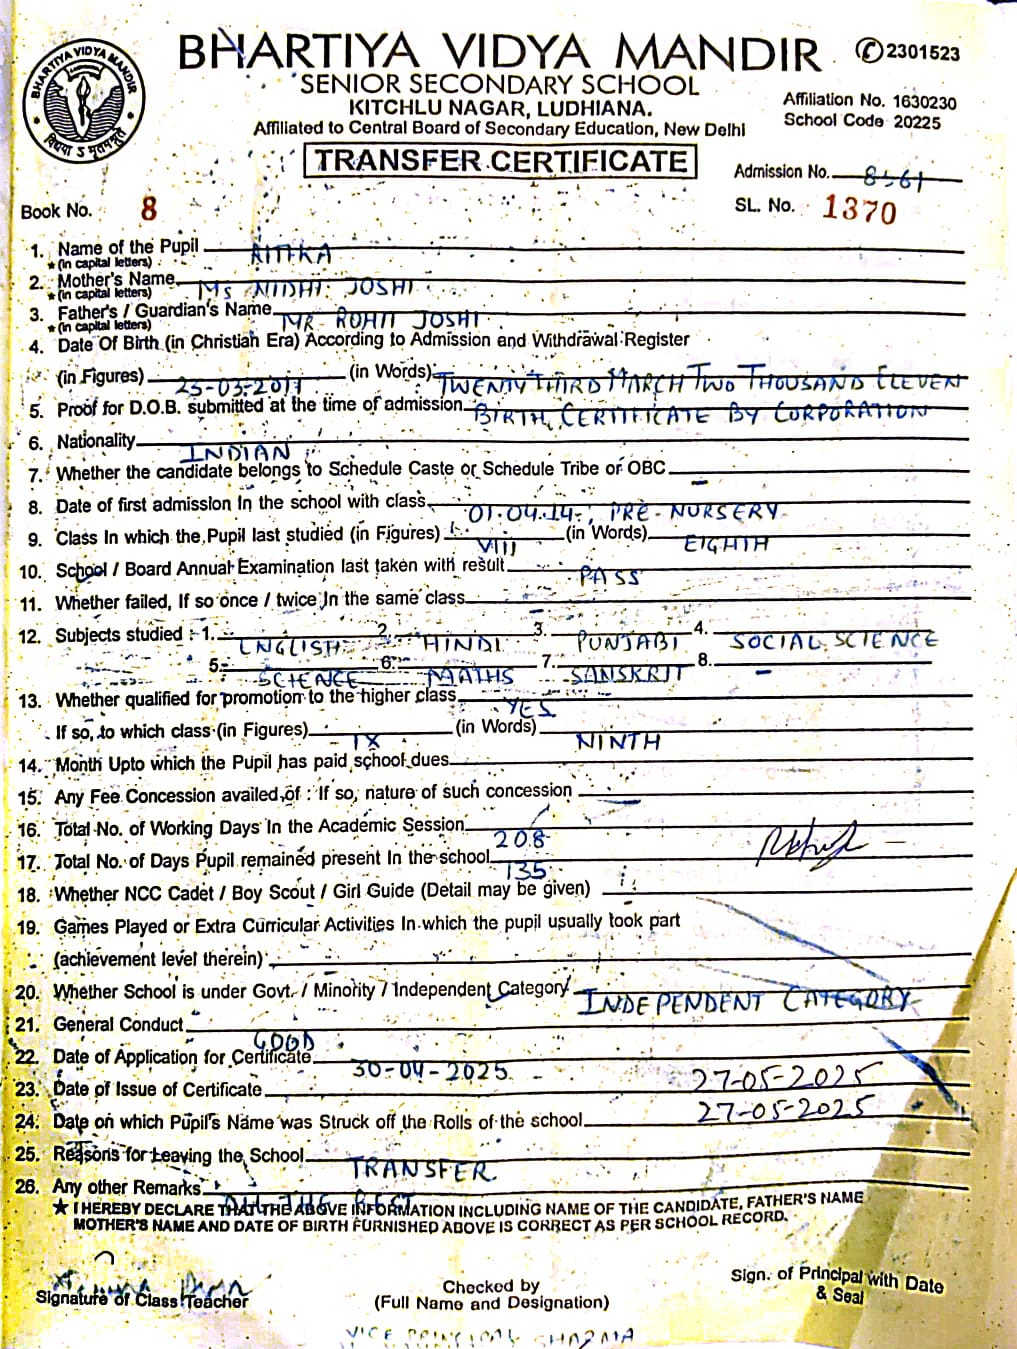 BHARTIYA VIDYA MANDIR
BHARTIYA VIDYA MANDIR ✆2301523
SENIOR SECONDARY SCHOOL
KITCHLU NAGAR, LUDHIANA.
Affiliation No. 1630230
School Code 20225
Affiliated to Central Board of Secondary Education, New Delhi
TRANSFER CERTIFICATE
Admission No. 8561
Book No. 8 SL. No. 1370
1. Name of the Pupil
*(in capital letters)
2. Mother's Name Ms NIDHI JOSHI
*(in capital letters)
3. Father's / Guardian's Name MR ROHIT JOSHI
*(in capital letters)
4. Date Of Birth (in Christian Era) According to Admission and Withdrawal Register
(in Figures) 23-03-2011 (in Words) TWENTY THIRD MARCH TWO THOUSAND ELEVEN
5. Proof for D.O.B. submitted at the time of admission BIRTH CERTIFICATE BY CORPORATION
6. Nationality INDIAN
7. Whether the candidate belongs to Schedule Caste or Schedule Tribe or OBC –
8. Date of first admission In the school with class 01.04.14, PRE-NURSERY
9. Class In which the Pupil last studied (in Figures) VIII (in Words) EIGHTH
10. School / Board Annual Examination last taken with result PASS
11. Whether failed, If so once / twice In the same class
12. Subjects studied :- 1. ENGLISH 2. HINDI 3. PUNJABI 4. SOCIAL SCIENCE
5. SCIENCE 6. MATHS 7. SANSKRIT 8. –
13. Whether qualified for promotion to the higher class YES
If so, to which class (in Figures) IX (in Words) NINTH
14. Month Upto which the Pupil has paid school dues
15. Any Fee Concession availed of : If so, nature of such concession
16. Total No. of Working Days In the Academic Session 208
17. Total No. of Days Pupil remained present In the school 135
18. Whether NCC Cadet / Boy Scout / Girl Guide (Detail may be given)
19. Games Played or Extra Curricular Activities In which the pupil usually took part
(achievement level therein)
20. Whether School is under Govt. / Minority / Independent Category INDEPENDENT CATEGORY
21. General Conduct GOOD
22. Date of Application for Certificate 30-04-2025
23. Date of Issue of Certificate 27-05-2025
24. Date on which Pupil's Name was Struck off the Rolls of the school 27-05-2025
25. Reasons for Leaving the School TRANSFER
26. Any other Remarks ALL THE BEST
★ I HEREBY DECLARE THAT THE ABOVE INFORMATION INCLUDING NAME OF THE CANDIDATE, FATHER'S NAME
MOTHER'S NAME AND DATE OF BIRTH FURNISHED ABOVE IS CORRECT AS PER SCHOOL RECORD.
Signature of Class Teacher
Checked by
(Full Name and Designation)
Sign. of Principal with Date
& Seal
VICE PRINCIPAL SHARMA